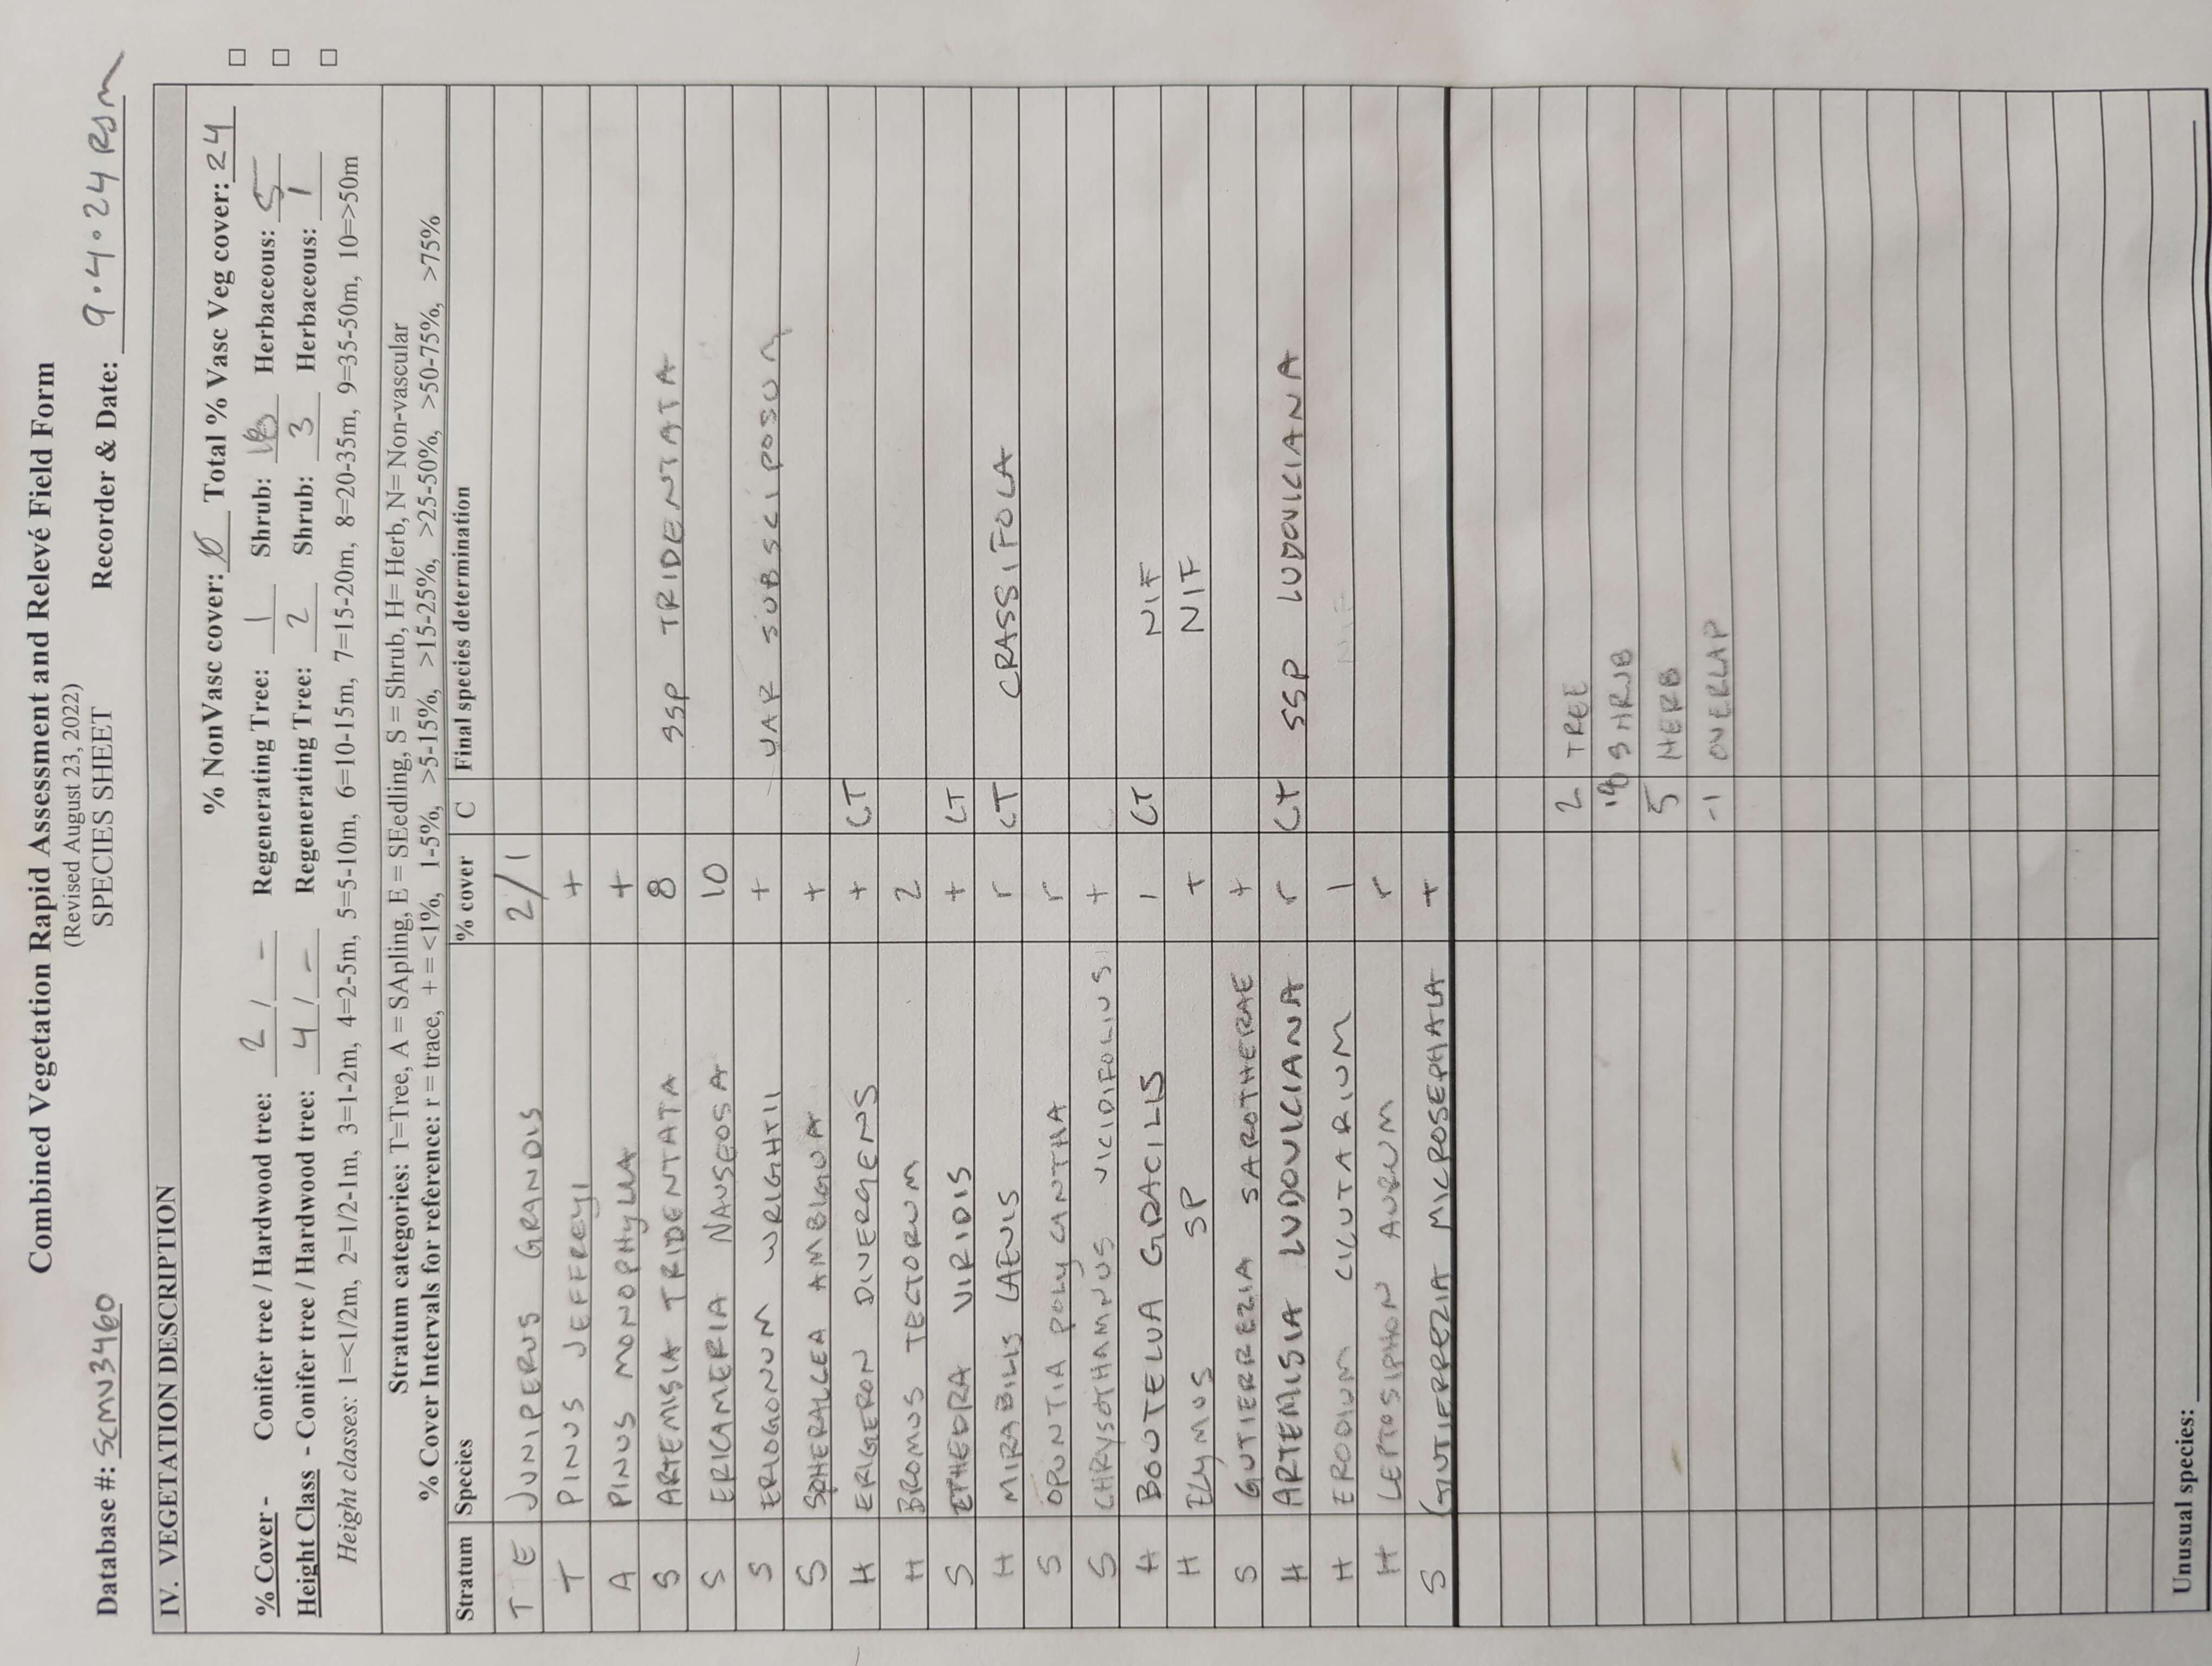 Combined Vegetation Rapid Assessment and Relevé Field Form
(Revised August 23, 2022)
SPECIES SHEET
Database #: SCMV3460 Recorder & Date: 9.4.24 RSM
IV. VEGETATION DESCRIPTION
% NonVasc cover: Ø Total % Vasc Veg cover: 24
% Cover - Conifer tree / Hardwood tree: 2 / - Regenerating Tree: 1 Shrub: 18 Herbaceous: 5
Height Class - Conifer tree / Hardwood tree: 4 / - Regenerating Tree: 2 Shrub: 3 Herbaceous: 1
Height classes: 1=<1/2m, 2=1/2-1m, 3=1-2m, 4=2-5m, 5=5-10m, 6=10-15m, 7=15-20m, 8=20-35m, 9=35-50m, 10=>50m
Stratum categories: T=Tree, A = SApling, E = SEedling, S = Shrub, H= Herb, N= Non-vascular
% Cover Intervals for reference: r = trace, + = <1%, 1-5%, >5-15%, >15-25%, >25-50%, >50-75%, >75%
Stratum Species % cover C Final species determination
T TE JUNIPERUS GRANDIS 2/1
T PINUS JEFFREYI +
A PINUS MONOPHYLLA +
S ARTEMISIA TRIDENTATA 8 SSP TRIDENTATA
S ERICAMERIA NAUSEOSA 10
S ERIOGONUM WRIGHTII + VAR SUBSCIPOSUM
S SPHERALCEA AMBIGUA +
H ERIGERON DIVERGENS + CT
H BROMUS TECTORUM 2
S EPHEDRA VIRIDIS + CT
H MIRABILIS LAEVIS r CT CRASSIFOLA
S OPUNTIA POLYCANTHA r
S CHRYSOTHAMNUS VICIDIFOLIUS +
H BOUTELUA GRACILIS 1 CT NIF
H ELYMUS SP + NIF
S GUTIERREZIA SAROTHERAE +
H ARTEMISIA LUDOVICIANA r CT SSP LUDOVICIANA
H ERODIUM CICUTARIUM 1 NIF
H LEPTOSIPHON AUREUM r
S GUTIERREZIA MICROSEPHALA +
2 TREE
SHRUB
5 HERB
-1 OVERLAP
Unusual species: